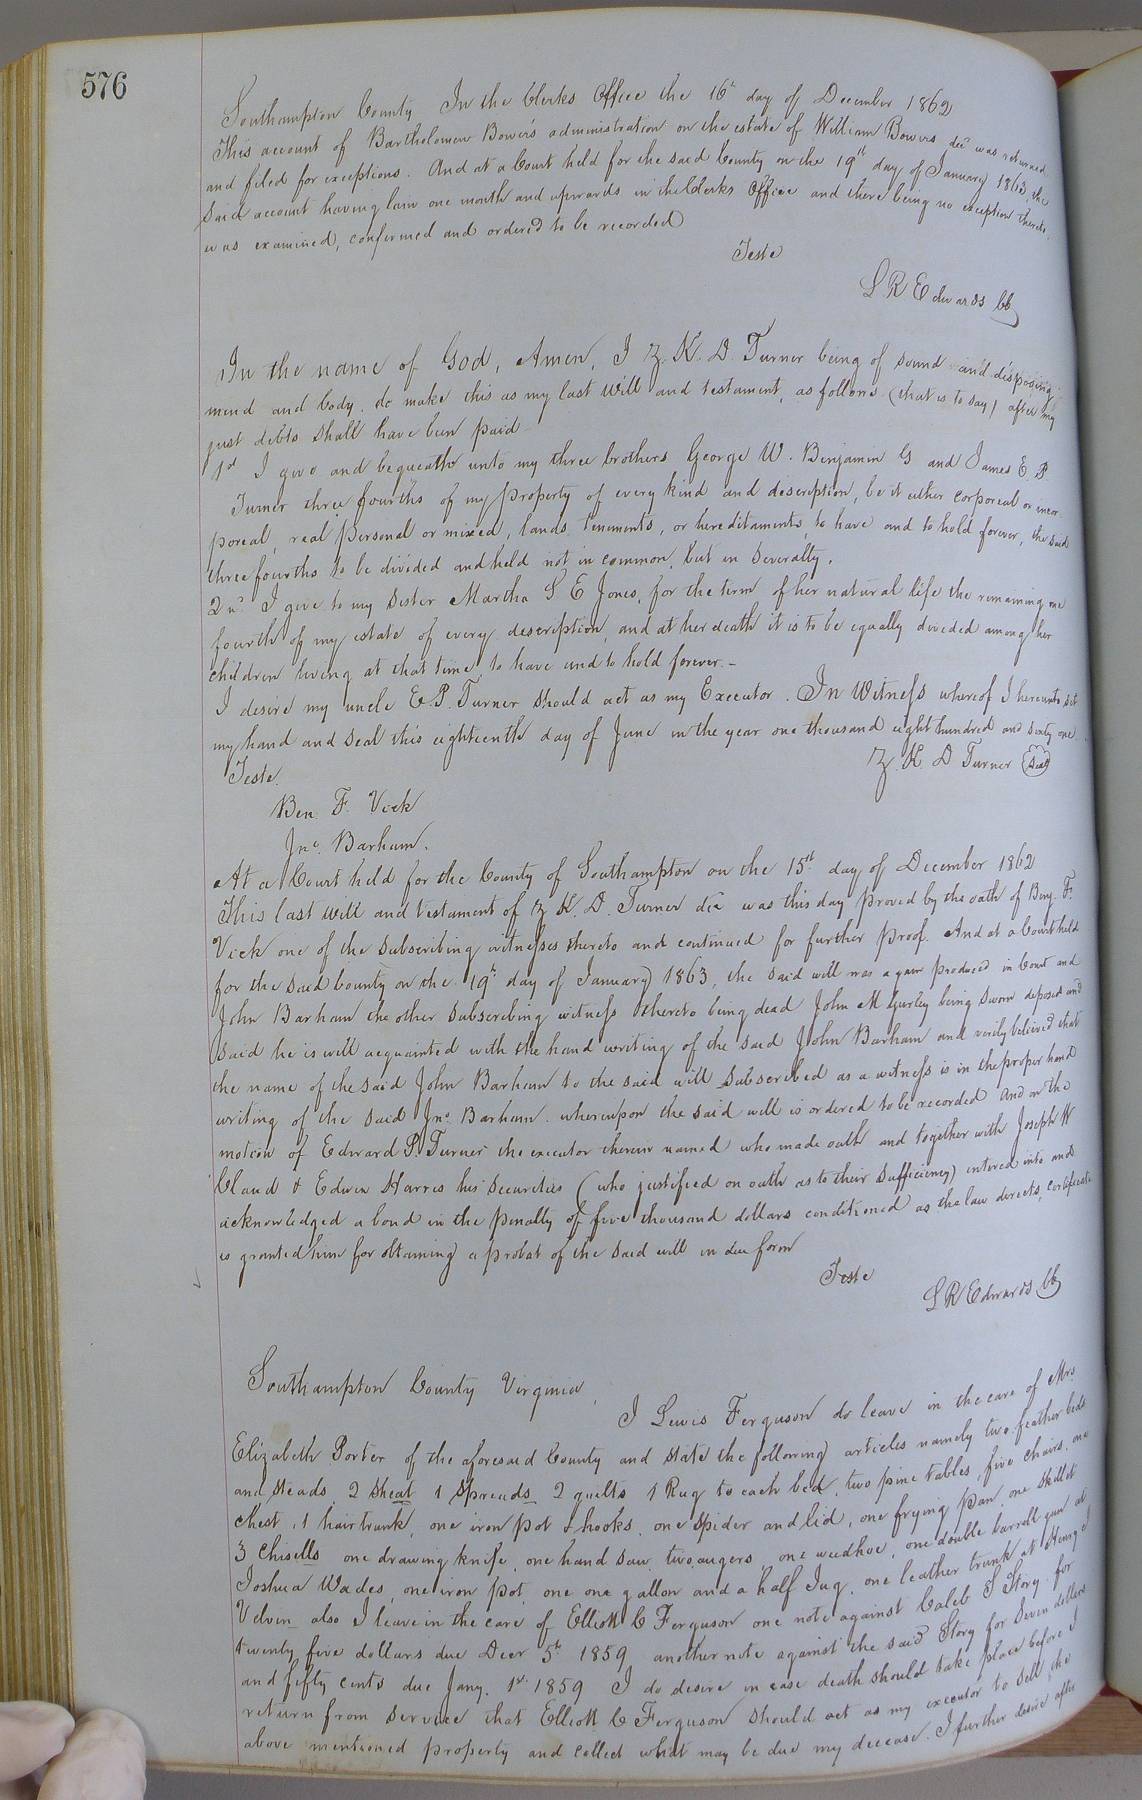 576
Southampton County In the Clerks Office the 16th day of December 1862
This account of Bartholomew Bowers administration on the estate of William Bowers decd was returned
and filed for exceptions. And at a Court held for the said County on the 19th day of January 1863, the
said account having lain one month and upwards in the Clerks Office and there being no exception thereto,
was examined, confirmed and ordered to be recorded
Teste
L R Edwards CC
In the name of God, Amen, I Z. K. D. Turner being of sound and disposing
mind and body. do make this as my last will and testament, as follows (that is to say) after my
just debts shall have been paid
1st I give and bequeath unto my three brothers George W. Benjamin G and James E. P.
Turner three fourths of my property of every kind and discription, be it either corporeal or incor-
poreal, real personal or mixed, lands tenements, or hereditaments, to have and to hold forever, the said
three fourths to be divided and held not in common, but in severalty.
2nd I give to my sister Martha S E Jones, for the term of her natural life the remaining one
fourth of my estate of every description, and at her death it is to be equally divided among her
children living at that time to have and to hold forever. -
I desire my uncle E. P. Turner should act as my Executor. In Witness whereof I hereunto set
my hand and seal this eighteenth day of June in the year one thousand eight hundred and sixty one
Z. K. D Turner (Seal)
Teste
Ben. F. Vick
Jno. Barham.
At a Court held for the County of Southampton on the 15th day of December 1862
This last will and testament of Z K. D. Turner dec was this day proved by the oath of Benj. F.
Vick one of the subscribing witnesses thereto and continued for further proof. And at a Court held
for the said County on the 19th day of January 1863, the said will was again produced in Court and
John Barham the other subscribing witness thereto being dead John M Gurley being sworn deposed and
said he is well acquainted with the hand writing of the said John Barham and verily believed that
the name of the said John Barham to the said will subscribed as a witness is in the proper hand
writing of the said Jno. Barham. whereupon the said will is ordered to be recorded And on the
motion of Edward P. Turner the executor therein named who made oath and together with Joseph W
Claud & Edwin Harris his securities (who justified on oath as to their sufficiency) entered into and
acknowledged a bond in the penalty of five thousand dollars conditioned as the law directs, certificate
is granted him for obtaining a probat of the said will in due form
Teste
L R Edwards CC
Southampton County Virginia,
I Lewis Ferguson do leave in the care of Mrs
Elizabeth Porter of the aforesaid County and state the following articles namely two feather beds
and steads, 2 sheat 1 spreads 2 quilts 1 Rug to each bed, two pine tables, five chairs, one
chest, 1 hair trunk, one iron pot & hooks, one spider and lid, one frying pan, one skillet
3 Chisells one drawing knife, one hand saw, two augers, one weedhoe, one double barrell gun at
Joshua Wades, one iron pot, one one gallon and a half Jug, one leather trunk at Henry J
Velvin also I leave in the care of Elliott C Ferguson one note against Caleb S Story for
twenty five dollars due Decr 5th 1859 another note against the said Story for seven dollars
and fifty cents due Jany. 1st 1859 I do desire in case death should take place before I
return from service that Elliott C Ferguson should act as my executor to sell the
above mentioned property and collect what may be due my decease. I further desire after